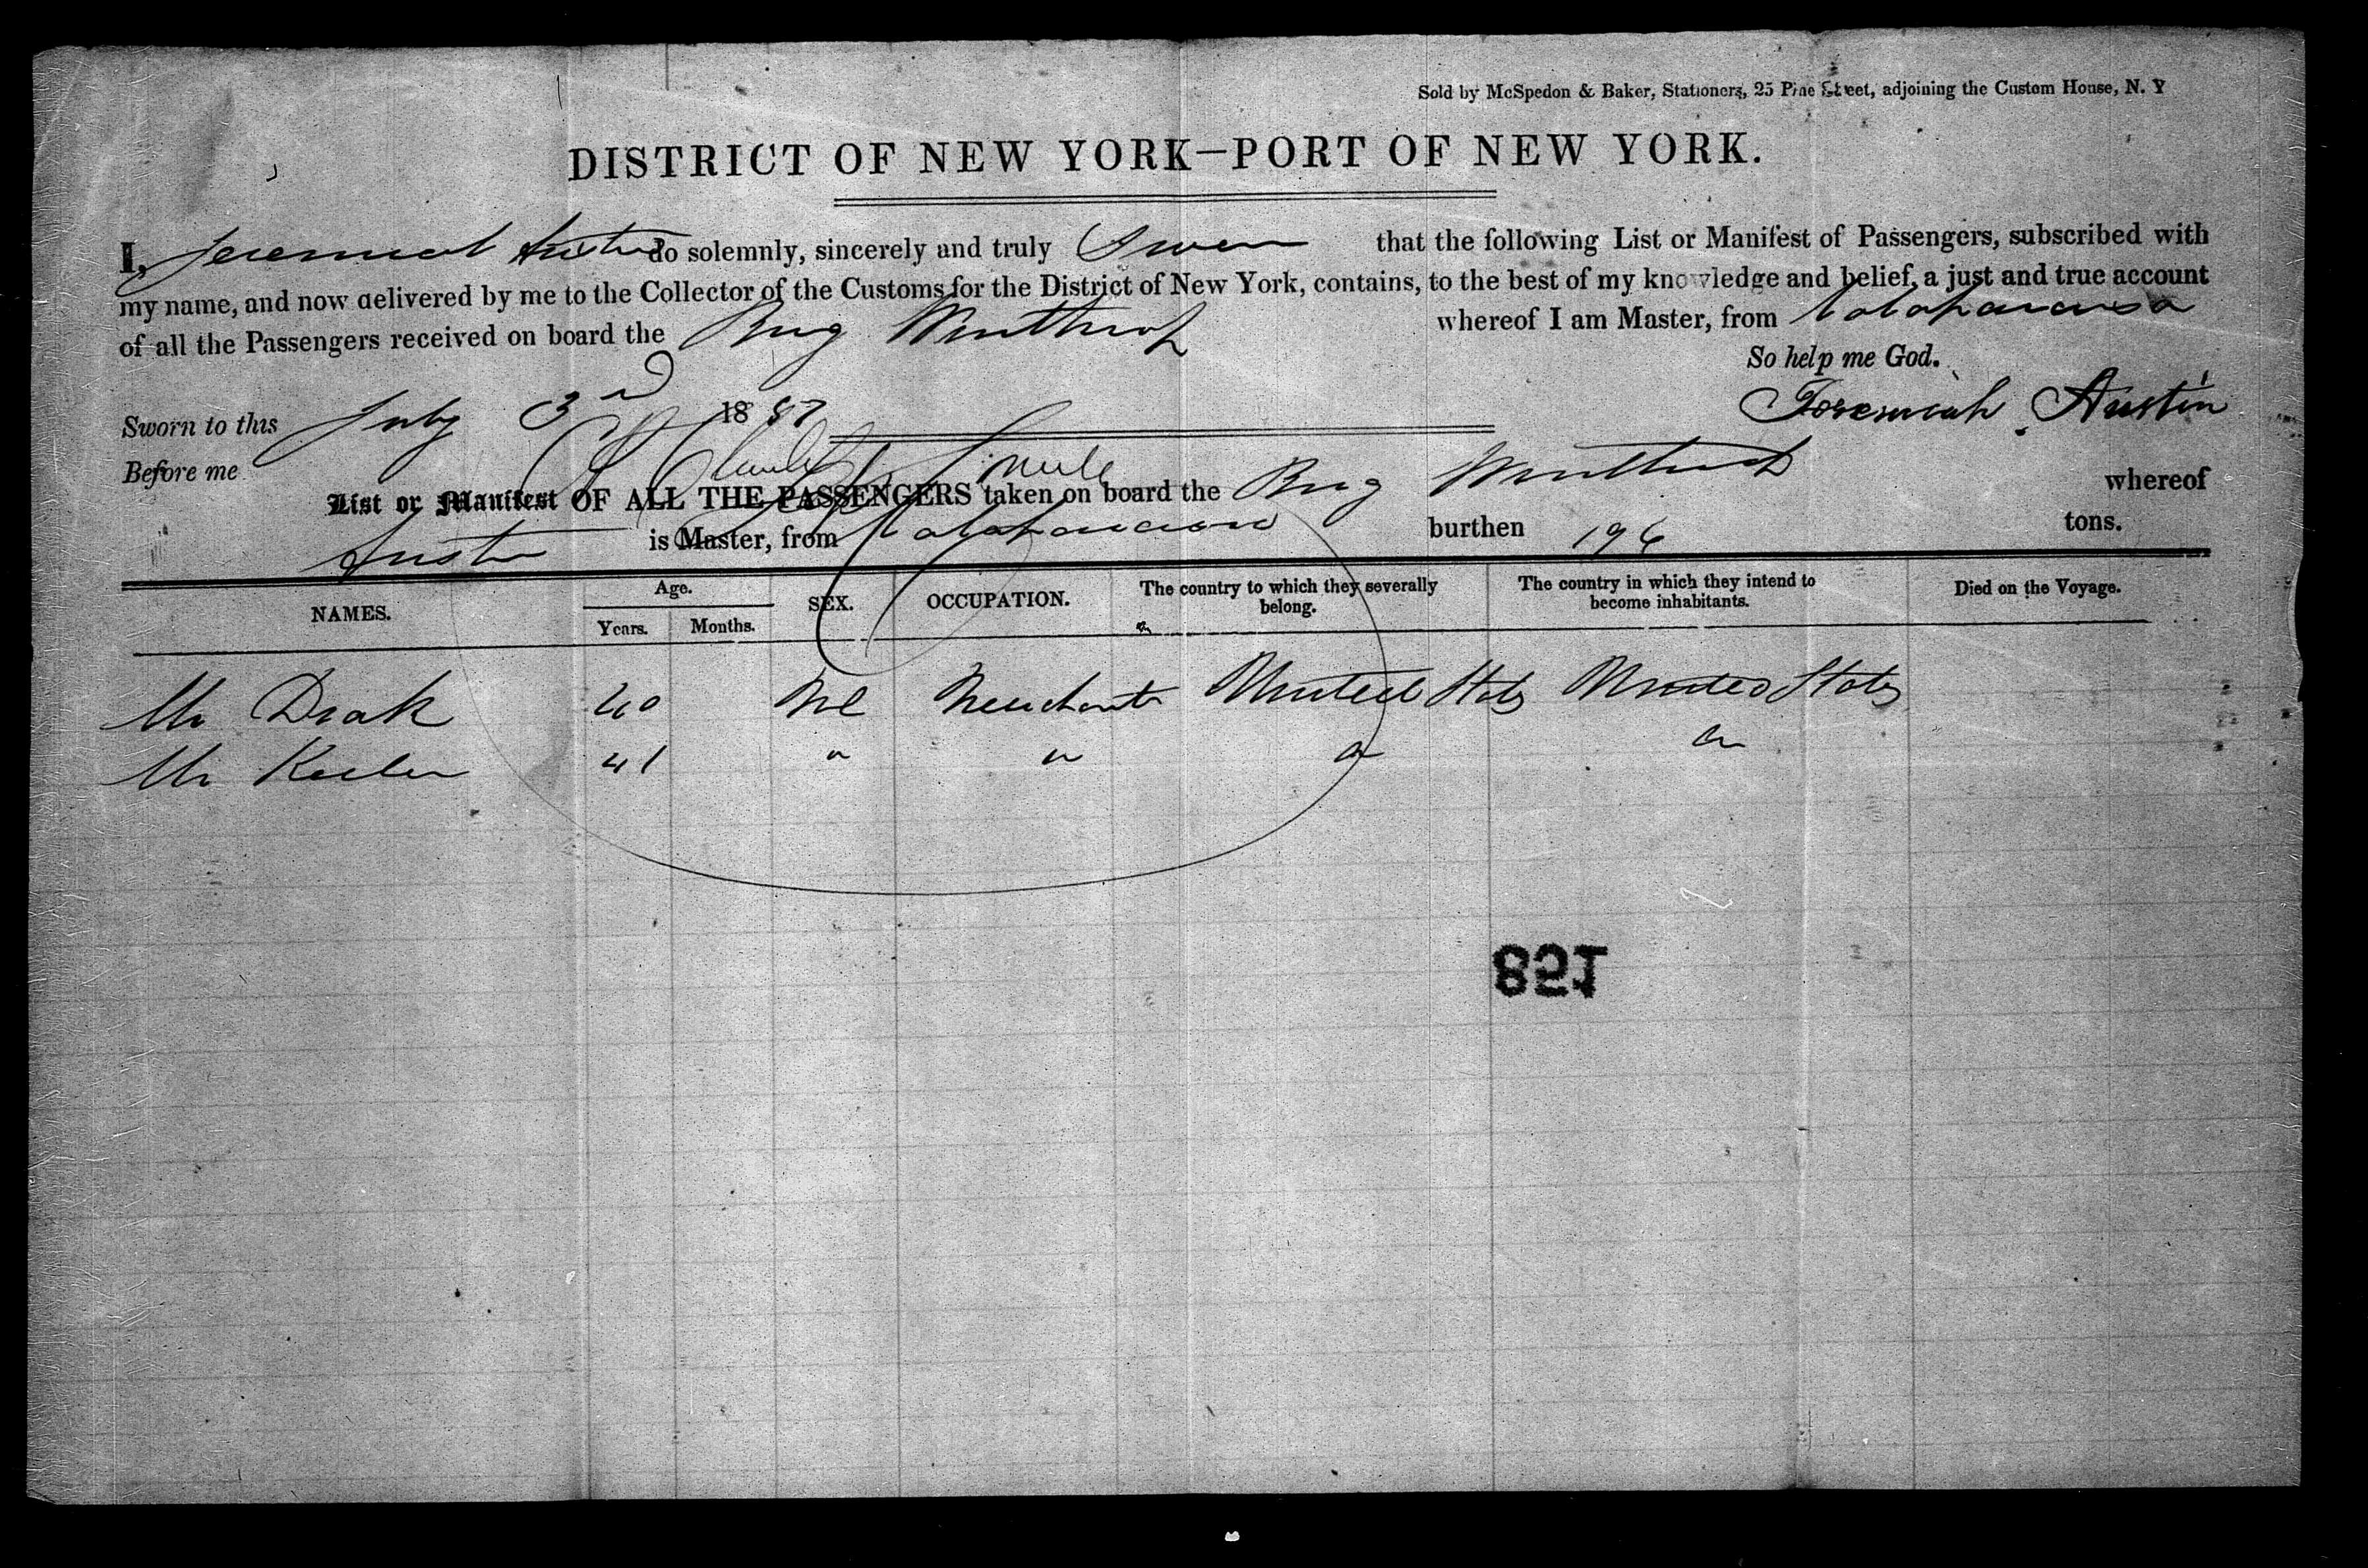 Sold by McSpedon & Baker, Stationers, 25 Pine Street, adjoining the Custom House, N. Y
DISTRICT OF NEW YORK—PORT OF NEW YORK.
I, Jeremiah Austin do solemnly, sincerely and truly Swear that the following List or Manifest of Passengers, subscribed with
my name, and now delivered by me to the Collector of the Customs for the District of New York, contains, to the best of my knowledge and belief, a just and true account
of all the Passengers received on board the Brig Winthrop whereof I am Master, from
So help me God.
Sworn to this July 3rd 18 Jeremiah Austin
Before me
List or Manifest OF ALL THE PASSENGERS taken on board the Brig Winthrop whereof
Austin is Master, from burthen 196 tons.
NAMES. Age. SEX. OCCUPATION. The country to which they severally belong. The country in which they intend to become inhabitants. Died on the Voyage.
Years. Months.
Mr Drak 40 Ml Merchants United States United States
Mr Keeler 41 " " " "
851